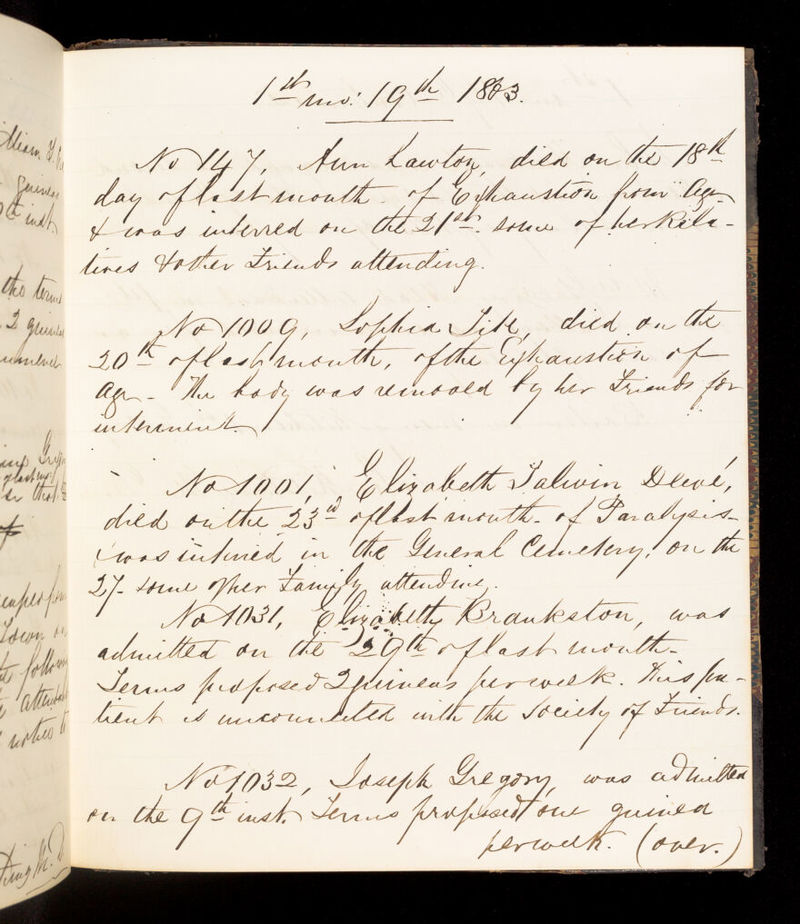 1st mo: 19th 1863.
No 147, Ann Lawton, died on the 18th
day of last month of Exhaustion from Age
& was interred on the 21st. some of her Rela-
tives & other Friends attending.
No 1009, Sophia died on the
20th of last month, of the Exhaustion of
Age - The body was removed by her Friends for
interment.
No 1001, Elizabeth Talwin
died on the 23rd of last month - of Paralysis -
& was interred in the General Cemetery, on the
27 - some of her Family attending.
No 1031, Elizabeth Brankston, was
admitted on the 29th of last month -
Terms proposed 2 guineas per week. This pa-
tient is unconnected with the Society of Friends.
No 1032, Joseph Gregory, was admitted
on the 9th inst. Terms proposed one guinea
per week. (over.)